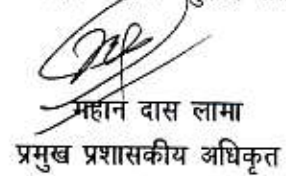 महान दास लामा
प्रमुख प्रशासकीय अधिकृत